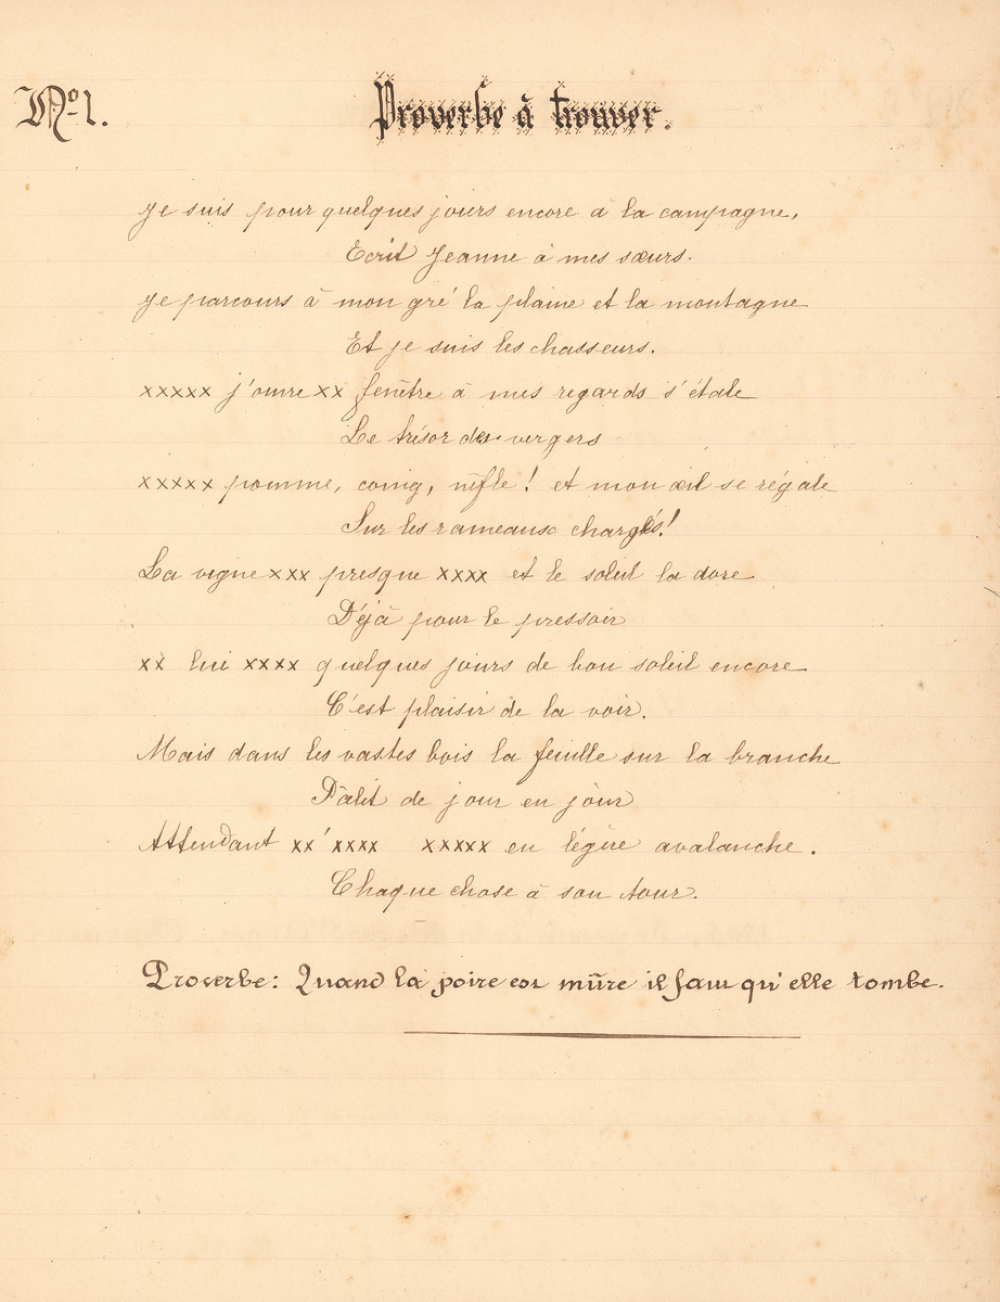 No 1.
Proverbe à trouver.
Je suis pour quelques jours encore à la campagne,
Ecrit Jeanne à mes sœurs.
Je parcours à mon gré la plaine et la montagne
Et je suis les chasseurs.
xxxxx j'ouvre xx fenêtre à mes regards s'étale
Le trésor des vergers
xxxxx pomme, coing, nèfle! et mon œil se régale
Sur les rameaux chargés!
La vigne xxx presque xxxx et le soleil la dore
Déjà pour le pressoir
xx lui xxxx quelques jours de bon soleil encore
C'est plaisir de la voir.
Mais dans les vastes bois la feuille sur la branche
Pâlit de jour en jour
Attendant xx'xxxx xxxxx en légère avalanche.
Chaque chose à son tour.
Proverbe: Quand la poire est mûre il faut qu'elle tombe.